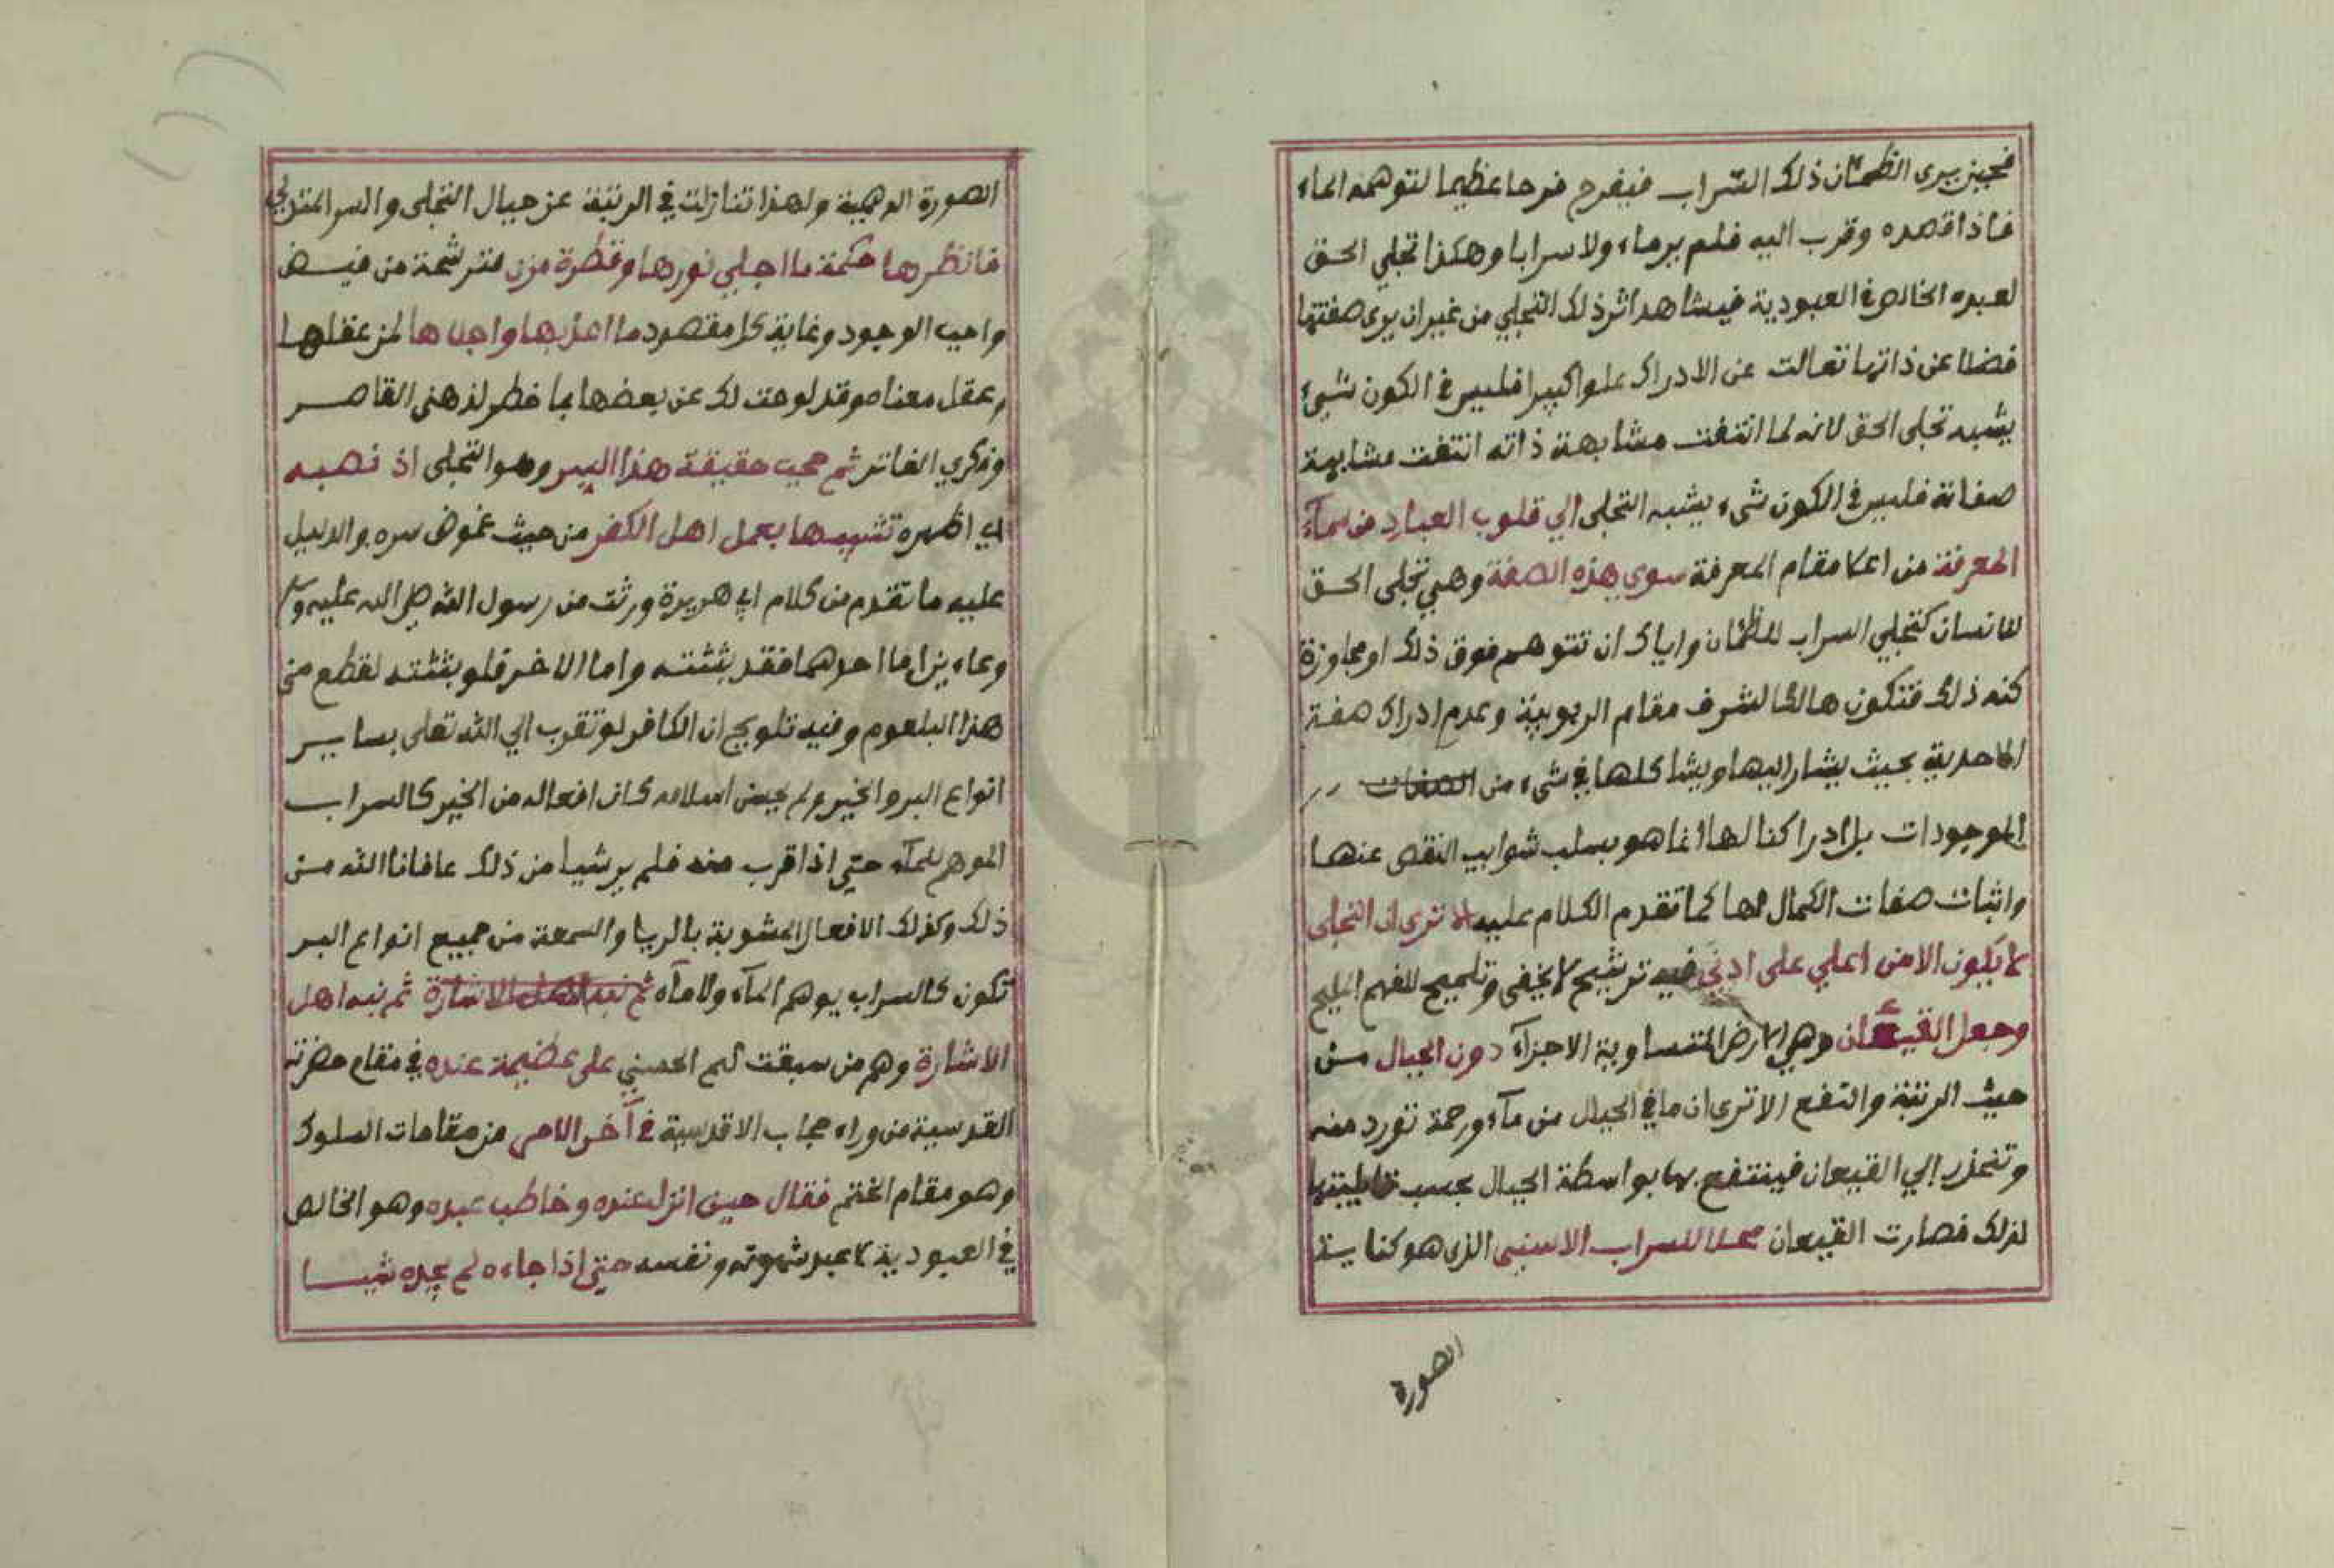 فحين يرى الظمآن ذلك السراب فيفرح فرحا عظيما لتوهمه الماء
فاذا قصده وقرب اليه فلم ير ماء ولا سرابا وهكذا تجلي الحق
لعبده الخالص في العبودية فيشاهد اثر ذلك التجلي من غير ان يرى صفتها
فضلا عن ذاتها تعالت عن الادراك علوا كبيرا فليس في الكون شيء
يشبه تجلى الحق لانه لما انتفت مشابهة ذاته انتفت مشابهة
صفاته فليس في الكون شيء يشبه التجلى الي قلوب العباد من سمآء
المعرفة من اعلا مقام المعرفة سوى هذه الصفة وهي تجلى الحق
للانسان كتجلي السراب للظمآن واياك ان تتوهم فوق ذلك او مجاوزة
كنه ذلك فتكون هالكا لشرف مقام الربوبية وعدم ادراك صفة
الاحدية بحيث يشار اليها ويشاكلها في شيء من الصفات
الموجودات بل ادراكنا لها انما هو بسلب شوايب النقص عنها
واثبات صفات الكمال لها كما تقدم الكلام عليه الا ترى ان التجلى
لا يكون الا من اعلي على ادني فيه ترشيح لا يخفى وتلميح للفهم المليح
وجعل القيعان وهي الارض المتساوية الاجزآء دون الجبال من
حيث الرتبة والنفع الا ترى ان ما في الجبال من مآء ورحمة تورد منه
وتنحذر الي القيعان فينتفع بها بواسطة الجبال بحسب قابليتها
لذلك فصارت القيعان محلا للسراب الاسنى الذى هو كناية
الصورة
الصورة الوهمية ولهذا تنازلت في الرتبة عن جبال التجلى والسر المتدلي
فانظرها حكمة ما اجلي نورها وقطرة مزن مترشحة من فيض
واجب الوجود وغاية كل مقصود ما اعذبها واجلاها لمن عقلها
وعقل معناها وقد لوحت لك عن بعضها بما خطر لذهني القاصر
وفكري الفاتر ثم حجب حقيقة هذا السر وهو التجلى اذ نصبه
اي اظهره تشبيها بعمل اهل الكفر من حيث غموض سره والدليل
عليه ما تقدم من كلام ابي هريرة ورثت من رسول الله صلى الله عليه وسلم
وعاءين اما احدهما فقد بثثته واما الاخر فلو بثثته لقطع مني
هذا البلعوم وفيه تلويح ان الكافر لو تقرب الي الله تعلى بساير
انواع البر والخير ولم يحسن اسلامه كان افعاله من الخير كالسراب
الموهم للمآء حتى اذا قرب منه فلم ير شيا من ذلك عافانا الله من
ذلك وكذلك الافعال المشوبة بالريا والسمعة من جميع انواع البر
تكون كالسراب يوهم المآء ولا مآء ثم نبه اهل الاشارة ثم نبه اهل
الاشارة وهم من سبقت لهم الحسني على عضيمة عنده في مقام حضرته
القدسية من وراء حجاب الاقدسية في آخر الامر من مقامات السلوك
وهو مقام الختم فقال حين انزل عنده وخاطب عبده وهو الخالص
في العبودية لا عبد شهوته ونفسه حتى اذا جاءه لم يجده شيا